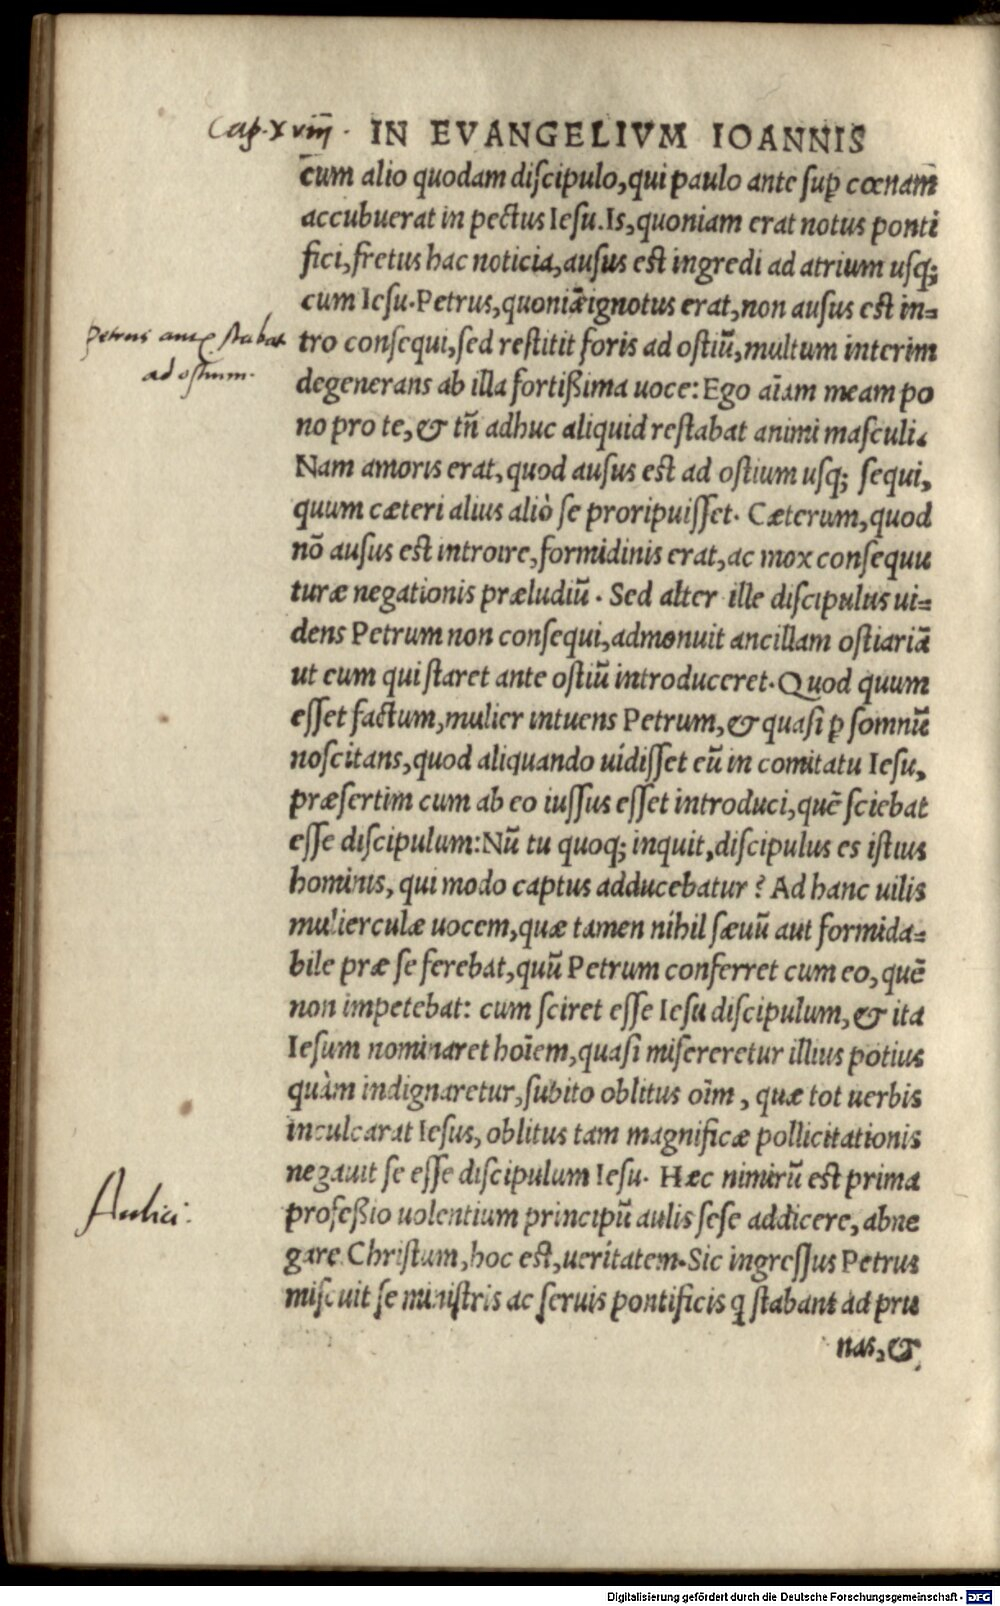 Cap. XVIII. IN EVANGELIVM IOANNIS
cum alio quodam diſcipulo, qui paulo ante ſup cœnam
accubuerat in pectus Ieſu. Is, quoniam erat notus ponti
fici, fretus hac noticia, auſus eſt ingredi ad atrium uſq;
cum Ieſu. Petrus, quoniã ignotus erat, non auſus eſt in=
Petrus autẽ ſtabat
ad oſtium.
tro conſequi, ſed reſtitit foris ad oſtiũ, multum interim
degenerans ab illa fortißima uoce: Ego aĩam meam po
no pro te, & tñ adhuc aliquid reſtabat animi maſculi.
Nam amoris erat, quod auſus eſt ad oſtium uſq; ſequi,
quum cæteri alius aliò ſe proripuiſſet. Cæterum, quod
nõ auſus eſt introire, formidinis erat, ac mox conſequu
turæ negationis præludiũ. Sed alter ille diſcipulus ui=
dens Petrum non conſequi, admonuit ancillam oſtiariã
ut eum qui ſtaret ante oſtiũ introduceret. Quod quum
eſſet factum, mulier intuens Petrum, & quaſi ꝑ ſomnũ
noſcitans, quod aliquando uidiſſet eũ in comitatu Ieſu,
præſertim cum ab eo iuſſus eſſet introduci, quẽ ſciebat
eſſe diſcipulum: Nũ tu quoq; inquit, diſcipulus es iſtius
hominis, qui modo captus adducebatur? Ad hanc uilis
mulierculæ uocem, quæ tamen nihil ſæuũ aut formida=
bile præ ſe ferebat, quũ Petrum conferret cum eo, quẽ
non impetebat: cum ſciret eſſe Ieſu diſcipulum, & ita
Ieſum nominaret hoĩem, quaſi miſereretur illius potius
quàm indignaretur, ſubito oblitus oĩm, quæ tot uerbis
inculcarat Ieſus, oblitus tam magnificæ pollicitationis
negauit ſe eſſe diſcipulum Ieſu. Hæc nimirũ eſt prima
Aulici.
profeßio uolentium principũ aulis ſeſe addicere, abne
gare Chriſtum, hoc eſt, ueritatem. Sic ingreſſus Petrus
miſcuit ſe miniſtris ac ſeruis pontificis q ſtabant ad pru
nas, &
Digitalisierung gefördert durch die Deutsche Forschungsgemeinschaft - DFG